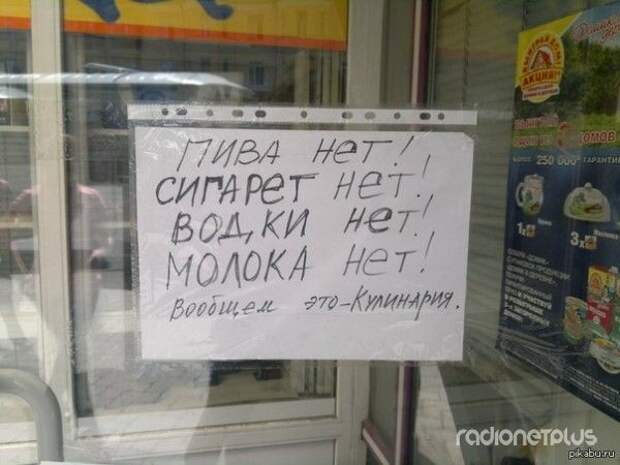 ПИВА НЕТ!
СИГАРЕТ НЕТ!
ВОДКИ НЕТ!
МОЛОКА НЕТ!
Вообщем это-Кулинария.
АКЦИЯ!
250 000
1х
3х
radionetplus
pikabu.ru